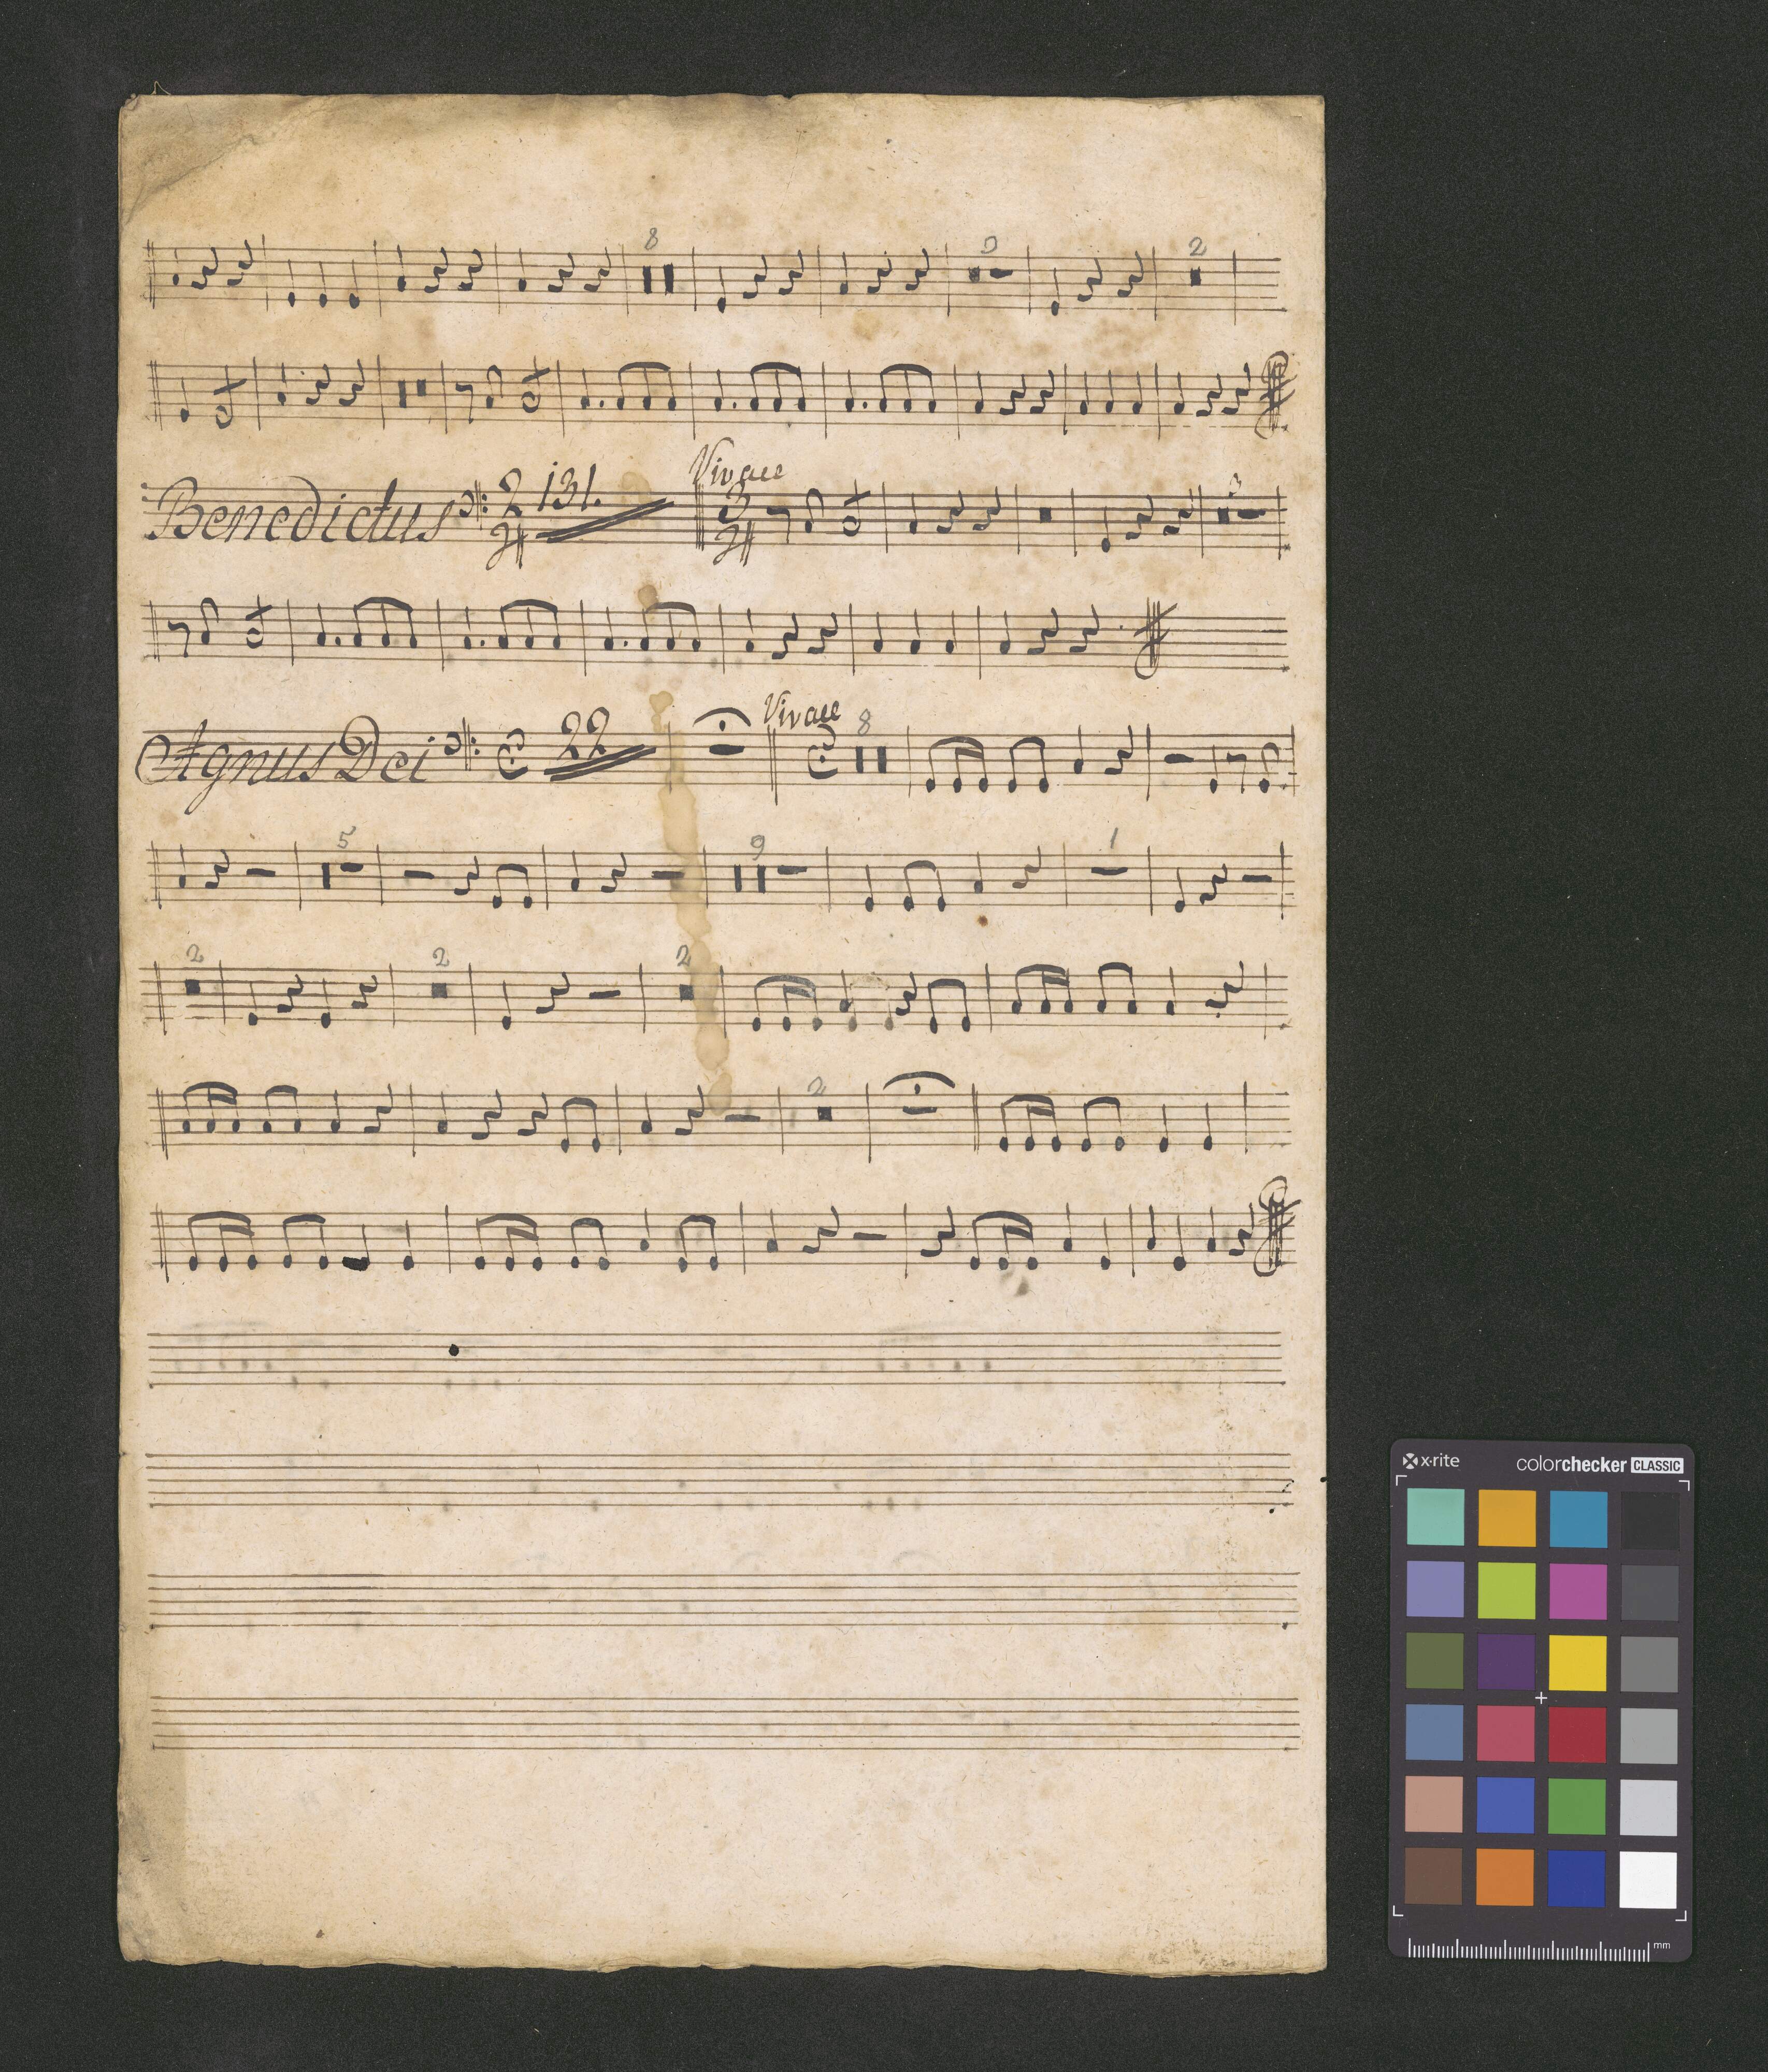 8 3 2
Vivace
Benedictus 2/4 131. 3/4 3
Vivace
Agnus Dei 22 8
5 9 1
2 2 2
2
x·rite colorchecker CLASSIC
mm